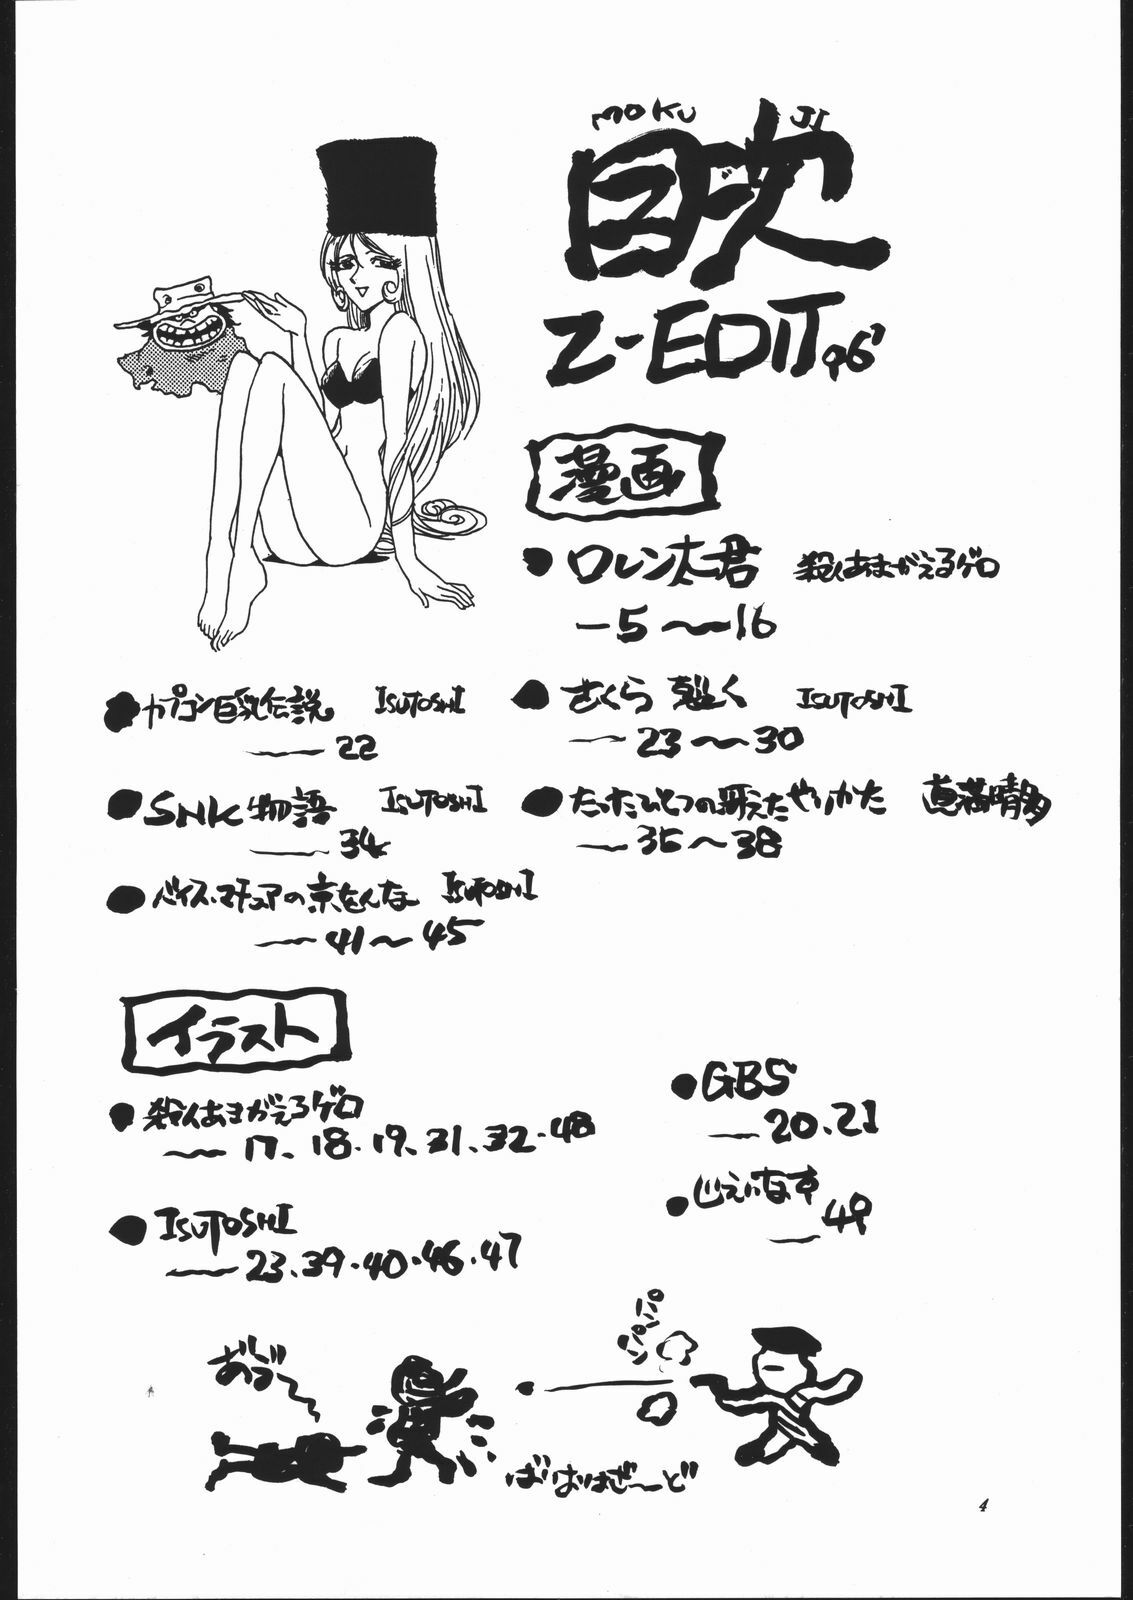 MOKU JI
目次
Z-EDIT 96'
漫画
●ロレン太君 殺人あまがえるゲロ
—5〜16
●カプコン巨乳伝説 ISUTOSHI
—22
●さくら ISUTOSHI
—23〜30
●SNK物語 ISUTOSHI
—34
●たったひとつの冴えたやりかた 真満晴多
—35〜38
●バイス・マチュアの京をんな ISUTOSHI
—41〜45
イラスト
●殺人あまがえるゲロ
—17、18・19、31、32・48
●GBS
—20、21
●ISUTOSHI
—23、39・40・46・47
●じえいなす
—49
パンパン
ばいはざーど
4